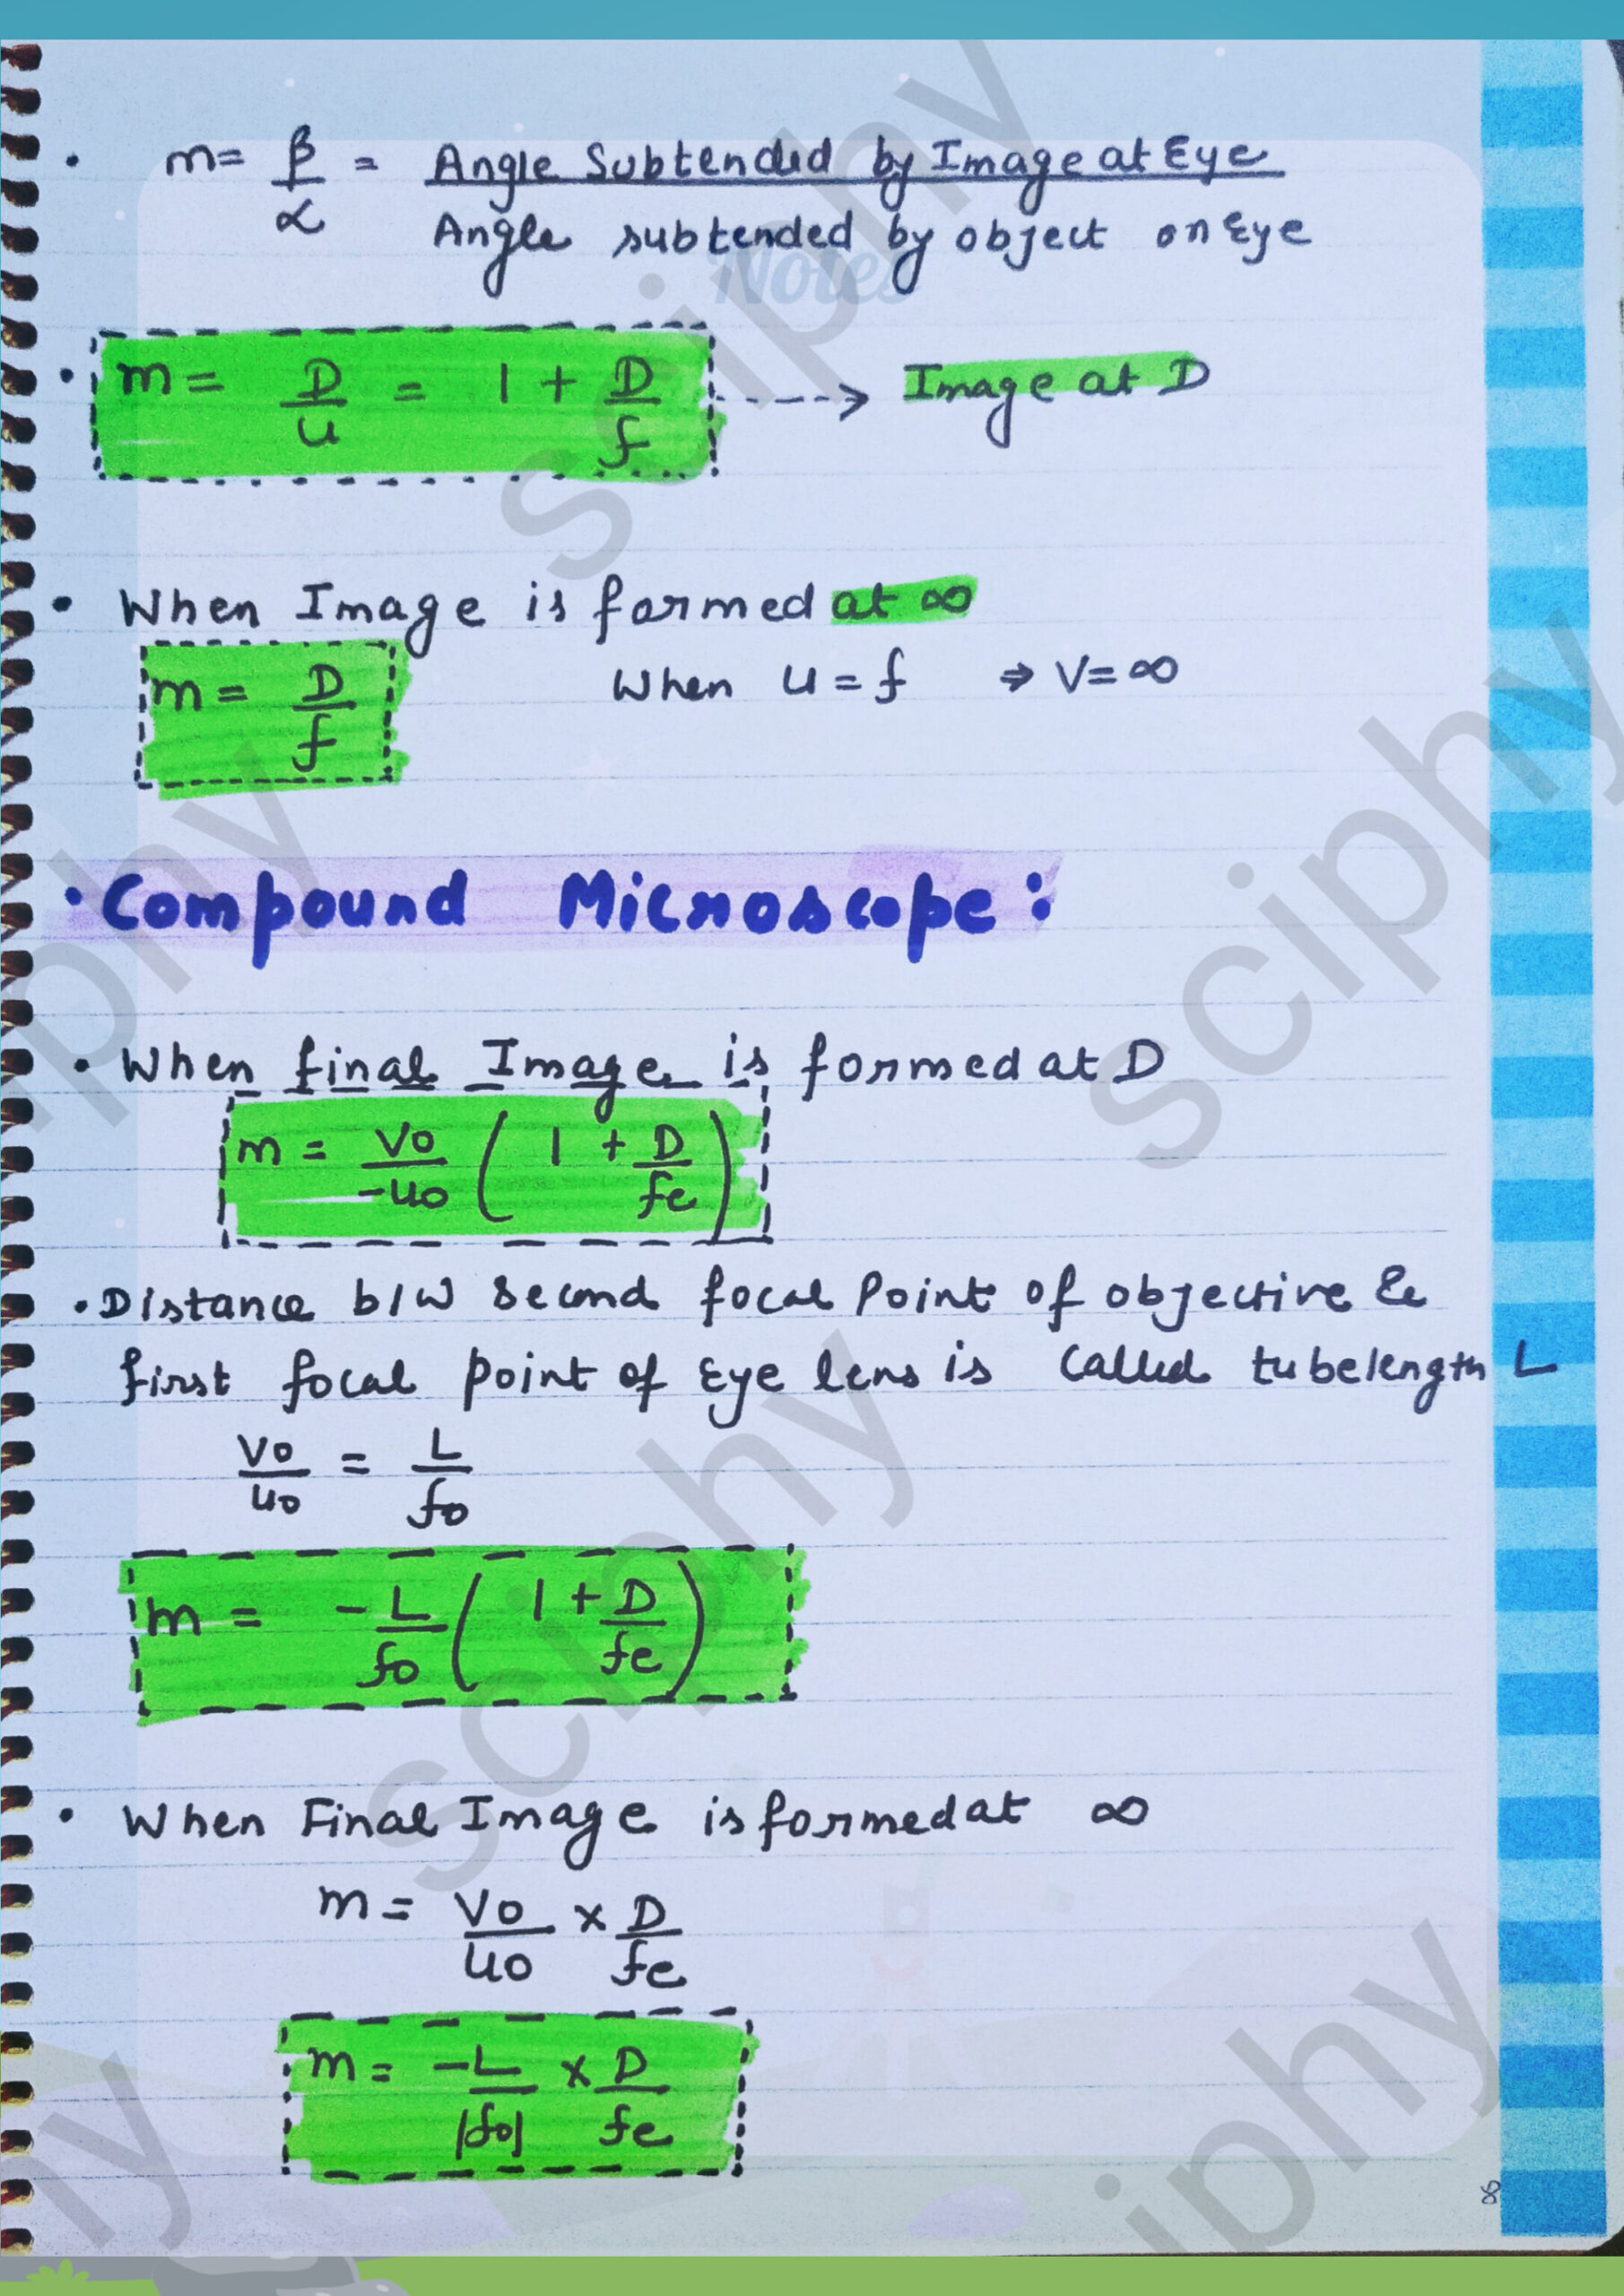 • m = β/α = Angle Subtended by Image at Eye / Angle subtended by object on Eye
Notes
• m = D/u = 1 + D/f ----> Image at D
• When Image is formed at ∞
m = D/f When u = f ⇒ V = ∞
• Compound Microscope:
• When final Image is formed at D
m = Vo/-uo ( 1 + D/fe )
• Distance b/w Second focal Point of objective &
first focal point of Eye lens is Called tubelength L
Vo/uo = L/fo
m = -L/fo ( 1 + D/fe )
• When Final Image is formed at ∞
m = Vo/uo x D/fe
m = -L/|fo| x D/fe
sciphy
sciphy
sciphy